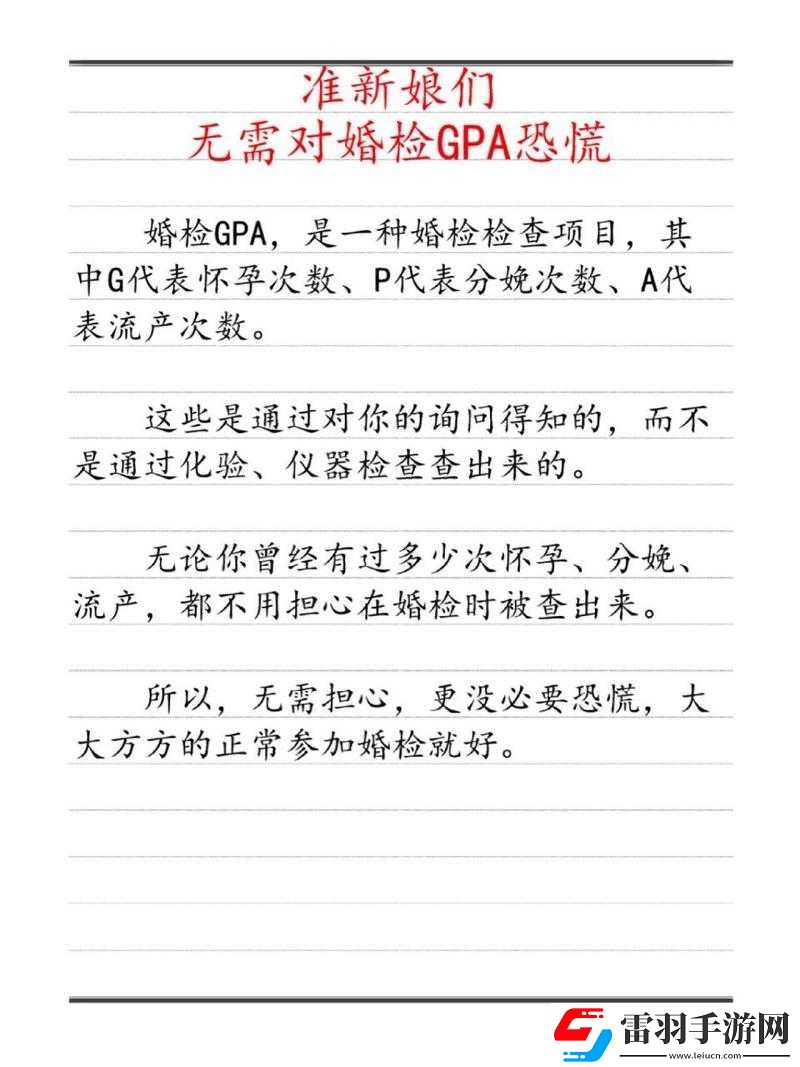 准新娘们
无需对婚检GPA恐慌
婚检GPA，是一种婚检检查项目，其
中G代表怀孕次数、P代表分娩次数、A代
表流产次数。
这些是通过对你的询问得知的，而不
是通过化验、仪器检查查出来的。
无论你曾经有过多少次怀孕、分娩、
流产，都不用担心在婚检时被查出来。
所以，无需担心，更没必要恐慌，大
大方方的正常参加婚检就好。
雷羽手游网
www.leiucn.com